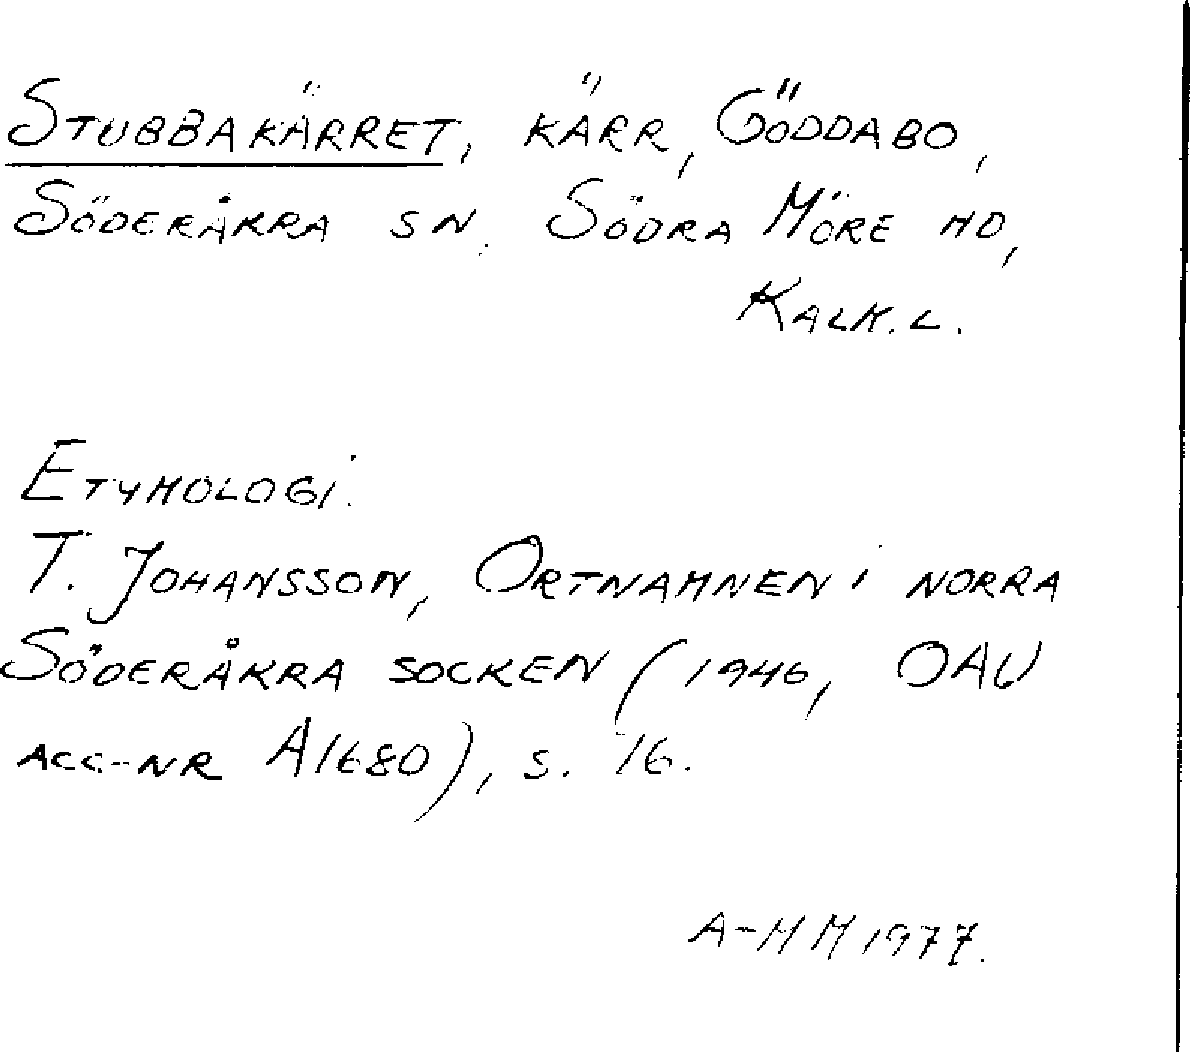 STUBBAKÄRRET, KÄRR, GÖDDABO,
SÖDERÅKRA SN. SÖDRA MÖRE HD,
KALK.L.
ETYMOLOGI.
T. JOHANSSON, ORTNAMNEN i NORRA
SÖDERÅKRA SOCKEN (1946, OAU
ACC-NR A1680), S. 16.
A-MM 1977.